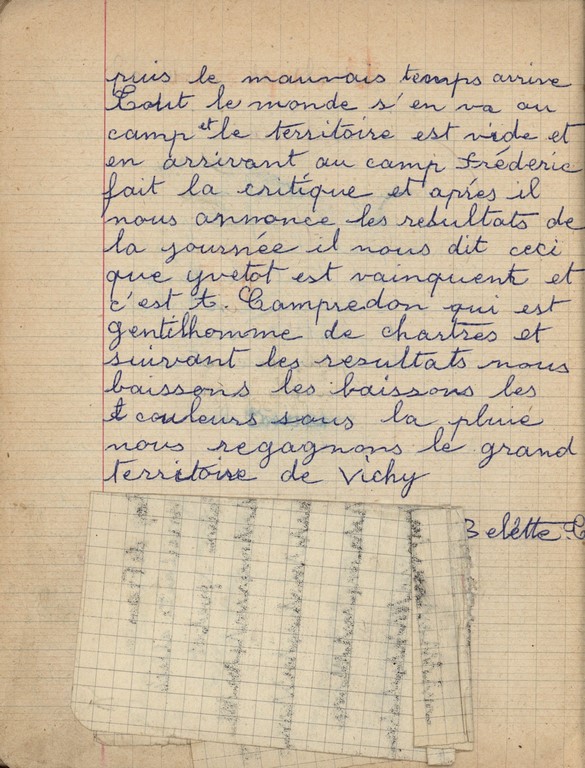 puis le mauvais temps arrive
Tout le monde s'en va au
camp et le territoire est vide et
en arrivant au camp Fréderic
fait la critique et aprés il
nous annonce les resultats de
la journée il nous dit ceci
que yvetot est vainquent et
c'est t. Campredon qui est
gentilhomme de chartres et
suivant les resultats nous
baissons les baissons les
couleurs sous la pluie
nous regagnons le grand
territoire de Vichy
Belétte